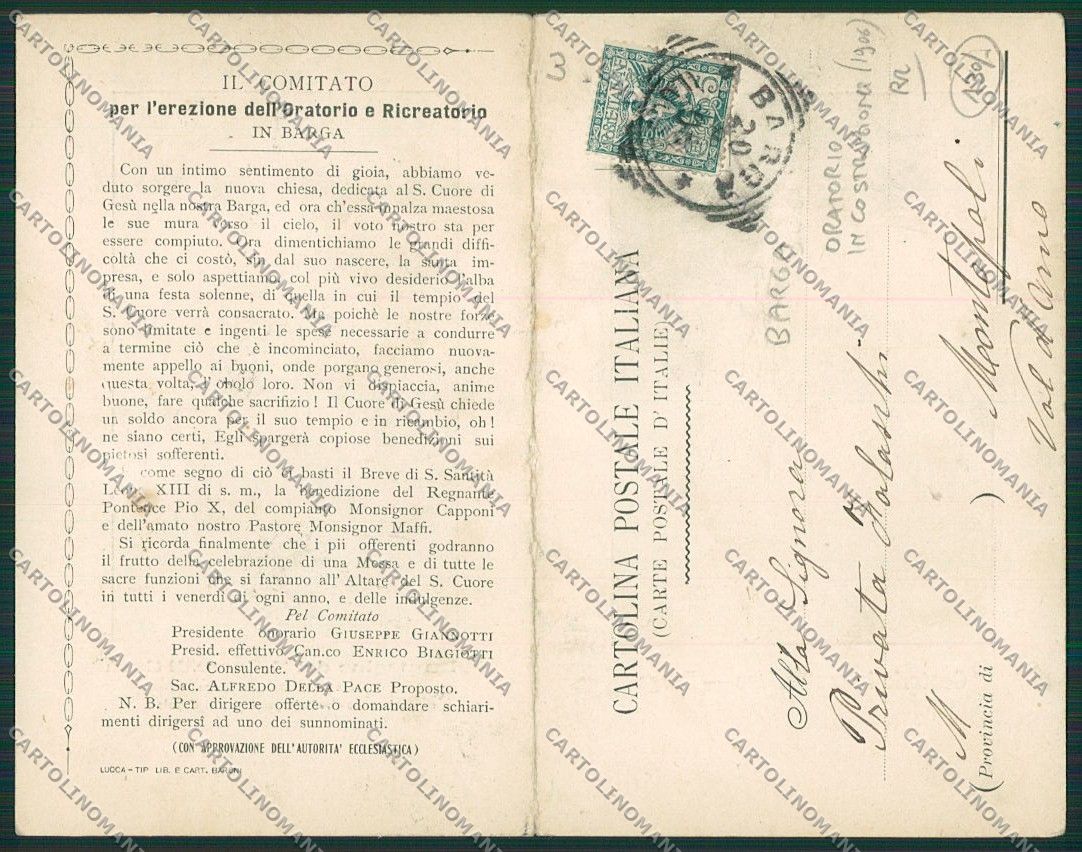 IL COMITATO
per l'erezione dell'Oratorio e Ricreatorio
IN BARGA
Con un intimo sentimento di gioia, abbiamo ve-
duto sorgere la nuova chiesa, dedicata al S. Cuore di
Gesù nella nostra Barga, ed ora ch'essa innalza maestosa
le sue mura verso il cielo, il voto nostro sta per
essere compiuto. Ora dimentichiamo le grandi diffi-
coltà che ci costò, sin dal suo nascere, la santa im-
presa, e solo aspettiamo col più vivo desiderio l'alba
di una festa solenne, di quella in cui il tempio del
S. Cuore verrà consacrato. Ma poichè le nostre forze
sono limitate e ingenti le spese necessarie a condurre
a termine ciò che è incominciato, facciamo nuova-
mente appello ai buoni, onde porgano generosi, anche
questa volta, l'obolo loro. Non vi dispiaccia, anime
buone, fare qualche sacrifizio! Il Cuore di Gesù chiede
un soldo ancora per il suo tempio e in ricambio, oh!
ne siano certi, Egli spargerà copiose benedizioni sui
pietosi sofferenti.
E come segno di ciò vi basti il Breve di S. Santità
Leone XIII di s. m., la benedizione del Regnante
Pontefice Pio X, del compianto Monsignor Capponi
e dell'amato nostro Pastore Monsignor Maffi.
Si ricorda finalmente che i pii offerenti godranno
il frutto della celebrazione di una Messa e di tutte le
sacre funzioni che si faranno all'Altare del S. Cuore
in tutti i venerdì di ogni anno, e delle indulgenze.
Pel Comitato
Presidente onorario GIUSEPPE GIANNOTTI
Presid. effettivo Can.co ENRICO BIAGIOTTI
Consulente.
Sac. ALFREDO DELLA PACE Proposto.
N. B. Per dirigere offerte o domandare schiari-
menti dirigersi ad uno dei sunnominati.
(CON APPROVAZIONE DELL'AUTORITA' ECCLESIASTICA)
LUCCA - TIP. LIB. E CART. BARONI
3
BARGA
CARTOLINA POSTALE ITALIANA
(CARTE POSTALE D'ITALIE)
BARGA
ORATORIO
IN COSTRUZIONE (1906)
RR
Alla Signora
Privata
M
Montopoli
Val d'Arno
(Provincia di )
CARTOLINOMANIA